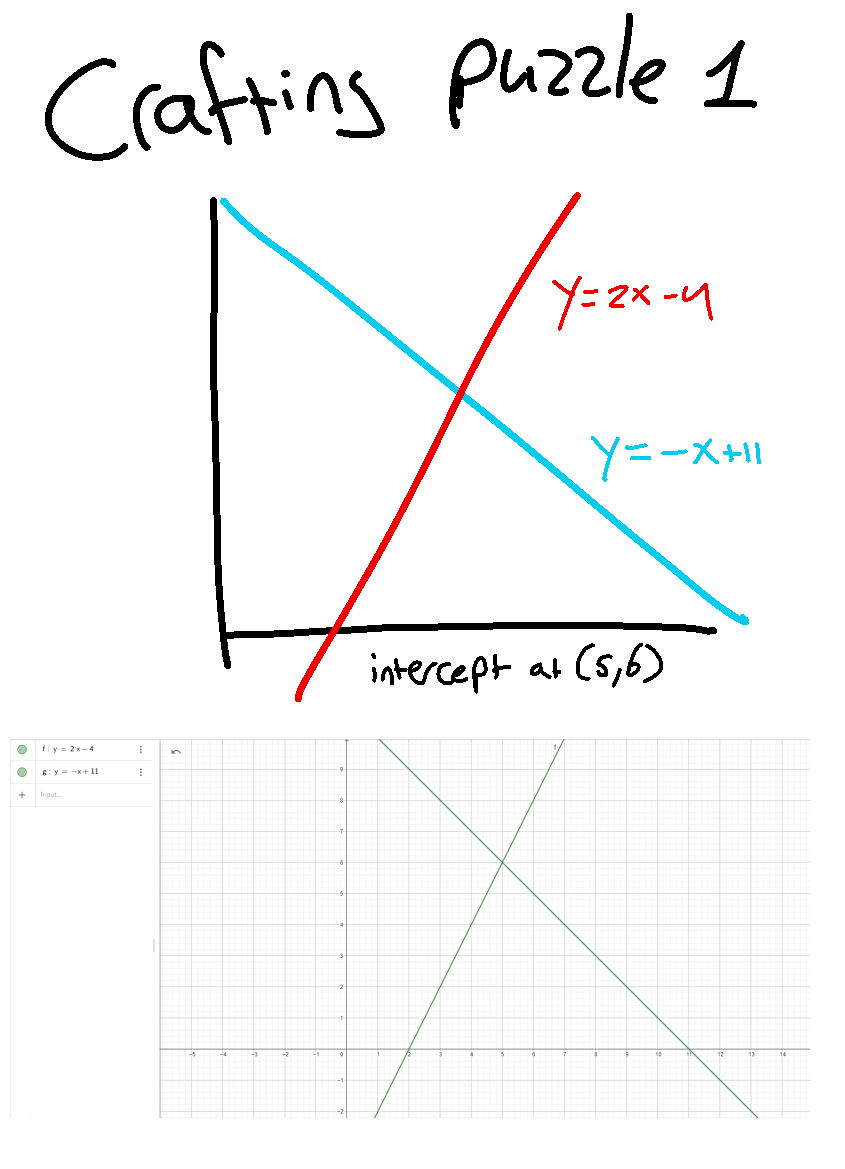 Crafting puzzle 1
y=2x-4
y=-x+11
intercept at (5,6)
f : y = 2x−4
g : y = −x+11
+ Input...
f
9
8
7
6
5
4
3
2
1
−5 −4 −3 −2 −1 0 1 2 3 4 5 6 7 8 9 10 11 12 13 14
−1
−2